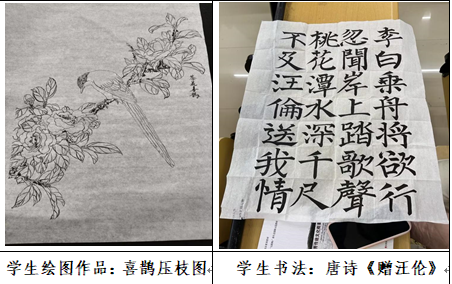 李白乘舟將欲行
忽聞岸上踏歌聲
桃花潭水深千尺
不及汪倫送我情
学生绘图作品：喜鹊压枝图
学生书法：唐诗《赠汪伦》